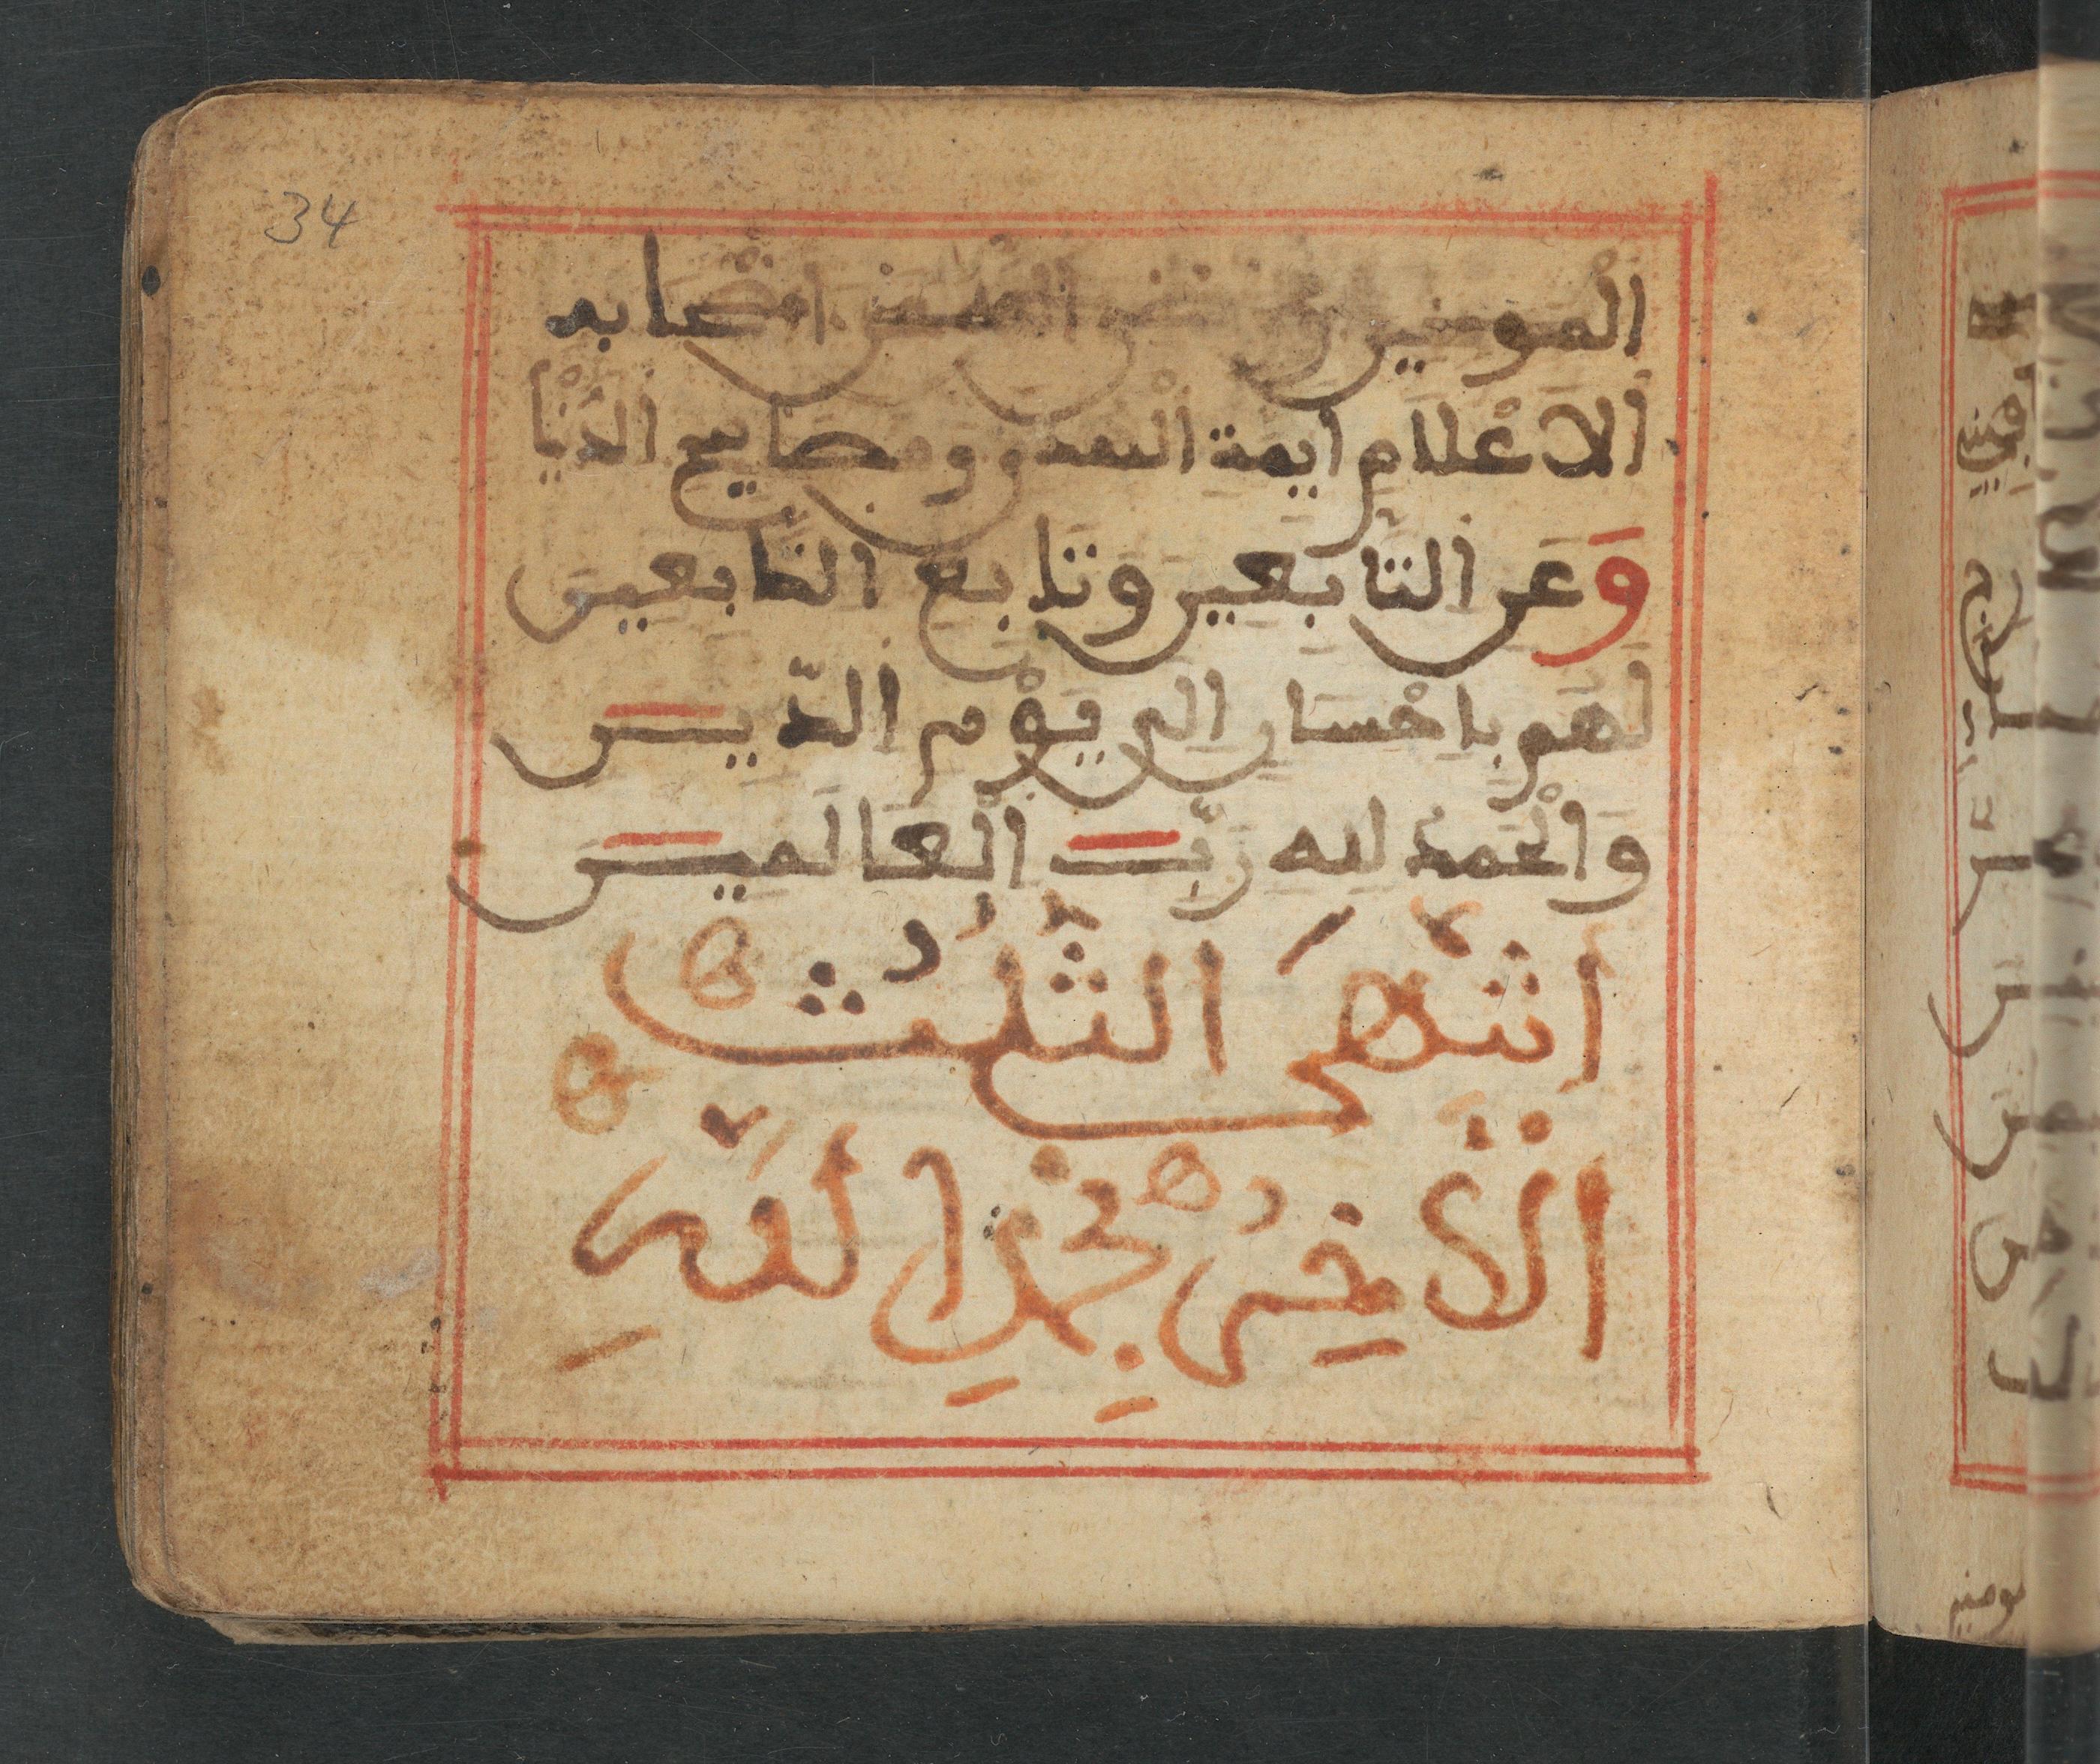 34
المومنين ورضي الله عن اصحابه
الاعلام ايمة الهدى ومصابيح الدنيا
وعن التابعين وتابع التابعين
لهم باحسان الى يوم الدين
والحمد لله رب العالمين
انتهى الثلث
الاخير بحمد الله